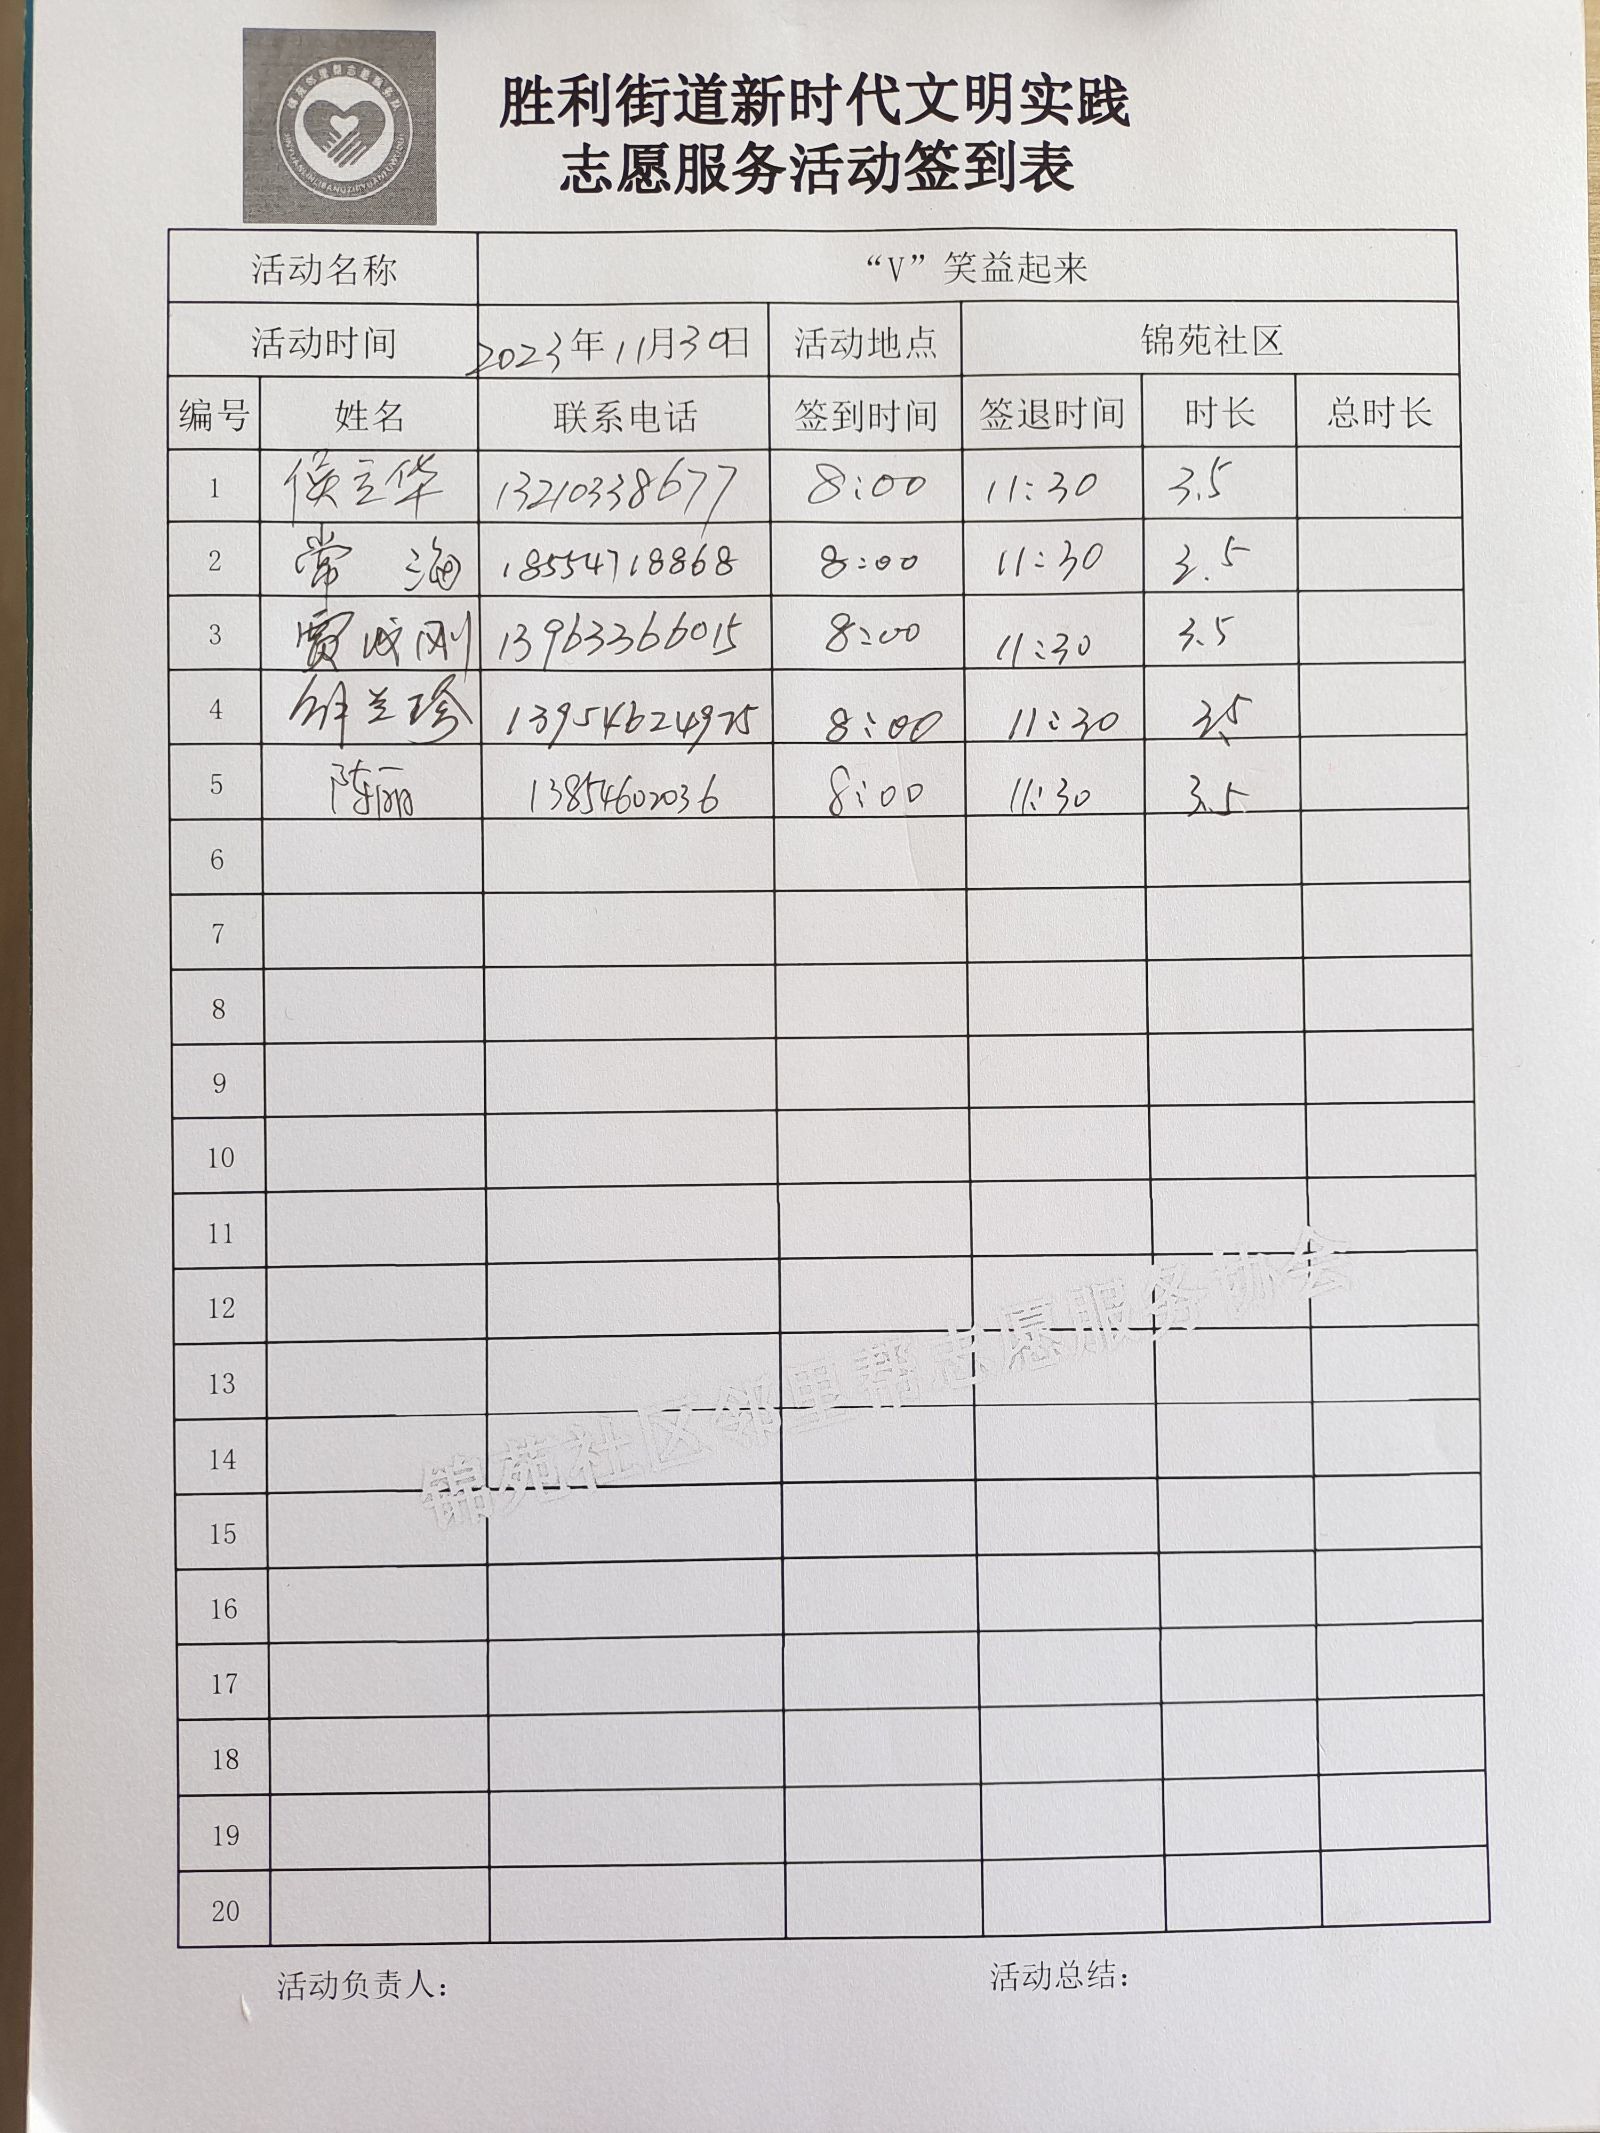 锦苑邻里帮志愿服务队
胜利街道新时代文明实践
志愿服务活动签到表
活动名称 “V”笑益起来
活动时间 2023年11月30日 活动地点 锦苑社区
编号 姓名 联系电话 签到时间 签退时间 时长 总时长
1 侯立华 13210338677 8:00 11:30 3.5
2 常海 18554718868 8:00 11:30 3.5
3 贾成刚 13963366015 8:00 11:30 3.5
4 兰珍 13954624975 8:00 11:30 3.5
5 陈丽 13854602036 8:00 11:30 3.5
6
7
8
9
10
11
12
13
14
15
16
17
18
19
20
锦苑社区邻里帮志愿服务协会
活动负责人: 活动总结: